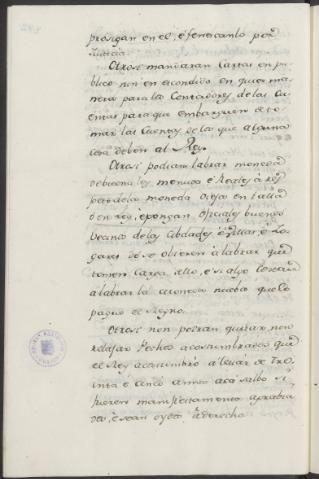 prosigan en el, é fenescanlo por
Justicia.
Otrosi mandaran Cartas en pu-
blico nin en escondido en quier ma-
nera para los Contadores de las Cu-
entas para que embarguen el to-
mar las Cuentas de lo que alguna
cosa deben al Rey.
Otrosi podian labrar moneda
de buena ley menuda é Reales á res-
peto de la moneda vieja en talla
ó en ley, é pongan oficiales buenos
vecinos de las Cibdades é Villas é Lo-
gares do se obieren á labrar que
tomen Carga, ello, é si algo costare
á labrar la moneda nueba que lo
pague el Reyno.
Otrosi non podran quitar nin
relajar Pechos acostumbrados que
el Rey acostumbró á levar de Tre-
inta é cinco annos acá salbo si
fueren manifiestamente agrabia-
dos, é sean oydos á derecho